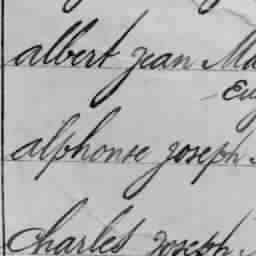 albert jean Ma
Eug
alphonse joseph
Charles joseph